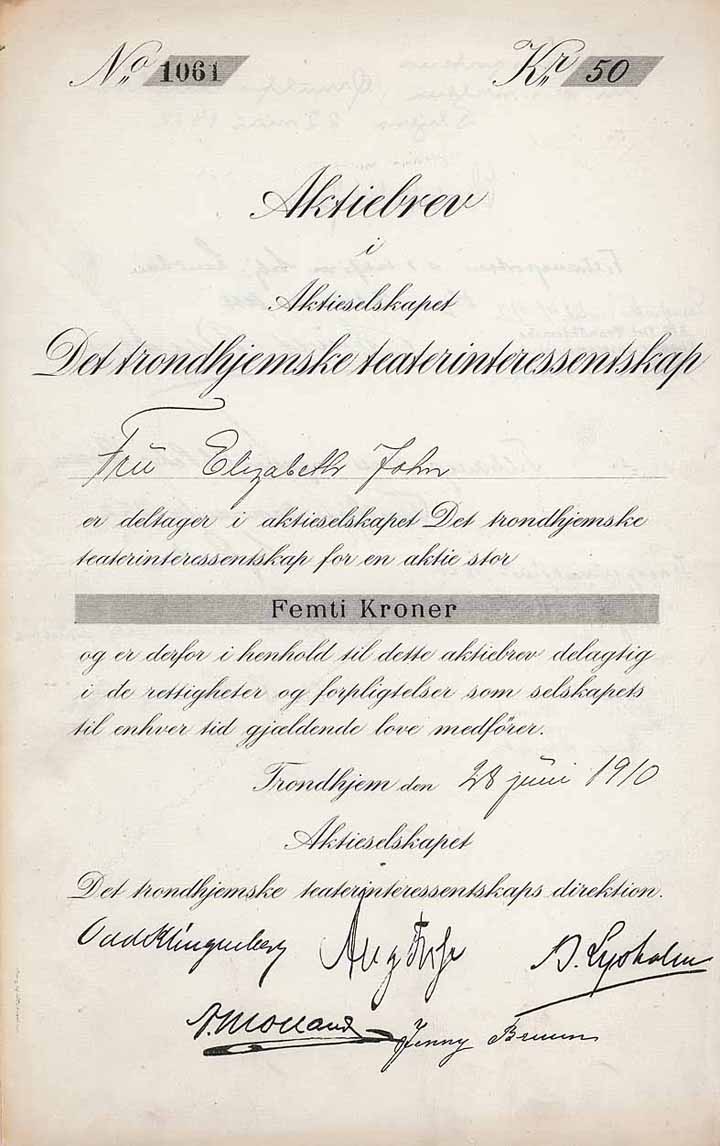 No 1061 Kr 50
Aktiebrev
i
Aktieselskapet
Det trondhjemske teaterinteressentskap
Fru Elizabeth John
er deltager i aktieselskapet Det trondhjemske
teaterinteressentskap for en aktie stor
Femti Kroner
og er derfor i henhold til dette aktiebrev delagtig
i de rettigheter og forpligtelser som selskapets
til enhver tid gjældende love medfører.
Trondhjem den 28 juni 1910
Aktieselskapet
Det trondhjemske teaterinteressentskaps direktion.
Odd Klingenberg B. Lysholm
Jenny Bruun